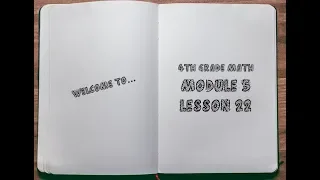 WELCOME TO...
4TH GRADE MATH
MODULE 3
LESSON 22